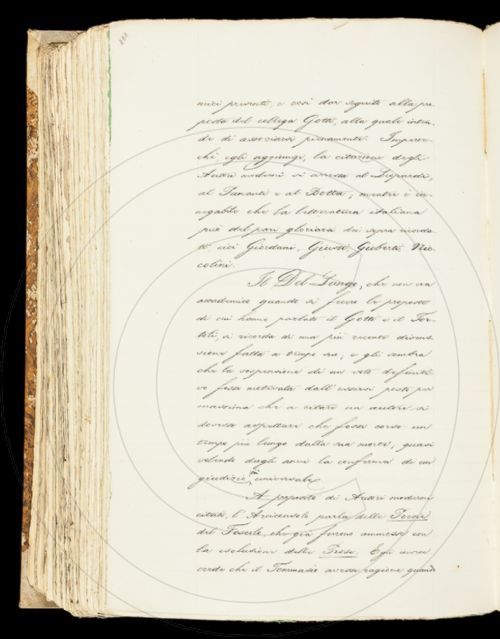 nuici presenti, e così dar seguito alla pro-
posta del collega Gotti, alla quale inten-
de di associarsi pienamente. Imperoc-
chè egli aggiunge, la citazione degli
Autori moderni si arresta al Leopardi,
al Pananti e al Botta; mentre è in-
negabile che la letteratura italiana
può del pari gloriarsi dei sopra ricorda-
ti cioè Giordani, Giusti, Guerrazzi, Nic-
colini.
Il Del-Lungo, che non era
accademico quando si fecero le proposte
di cui hanno parlato il Gotti e il Tor-
toli, si ricorda di una più recente discus-
sione fatta a tempo suo, e gli sembra
che la sospensione di un voto definiti-
vo fosse motivata dall'essersi posto per
massima che a citare un autore si
dovesse aspettare che fosse corso un
tempo più lungo dalla sua morte, quasi
volendo dagli anni la conferma di un
giudizio universale.
A proposito di Autori moderni
citati, l'Arciconsolo parla delle Poesie
del Foscolo, che già furono ammesse con
la esclusione delle Prose. Egli invece
crede che il Tommaseo avesse ragione quando